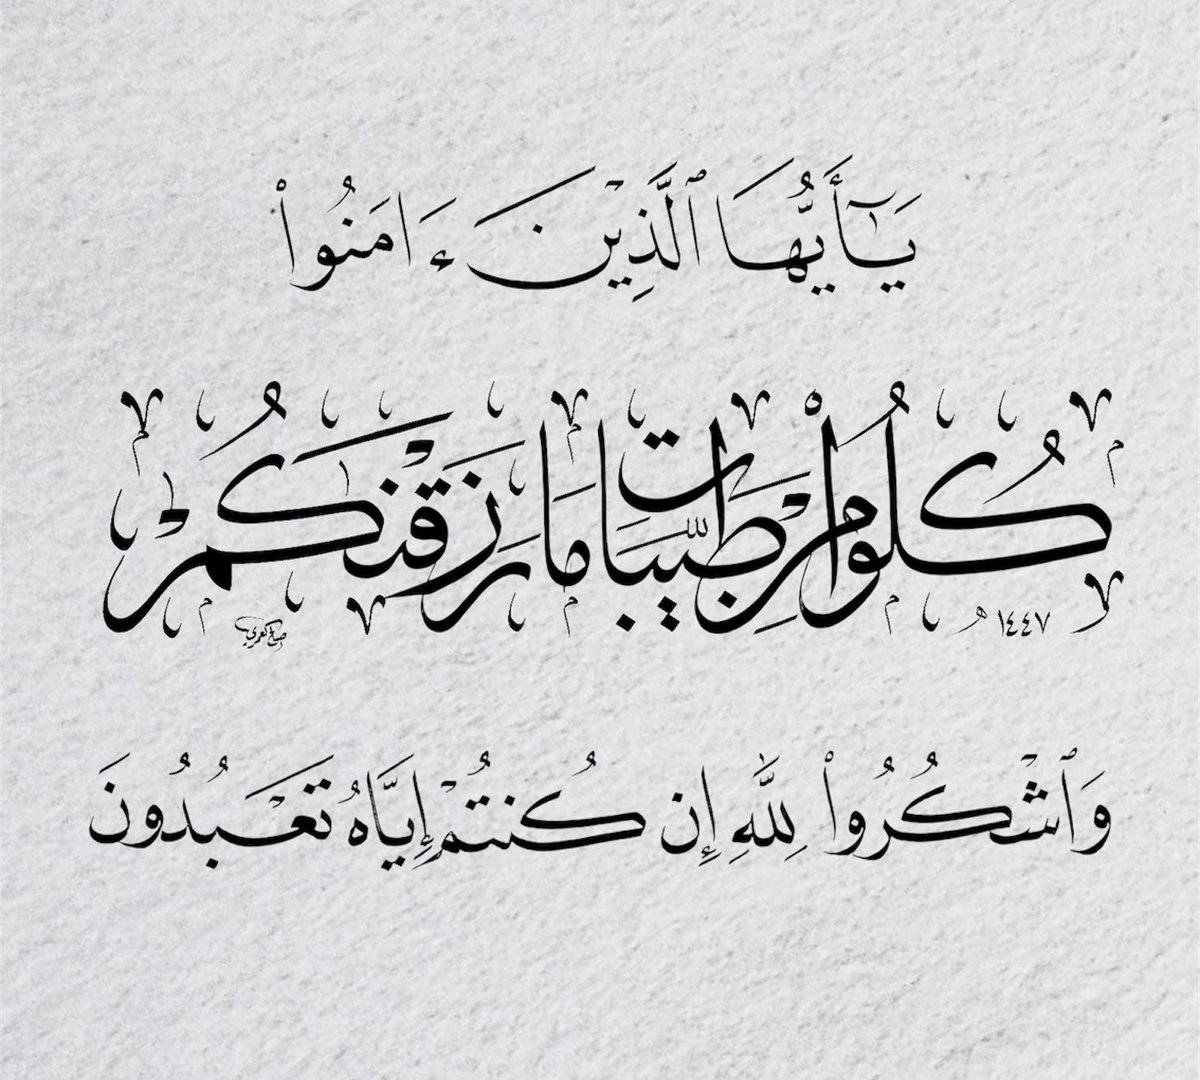 يَـٰٓأَيُّهَا ٱلَّذِينَ ءَامَنُوا۟
كُلُوا۟ مِن طَيِّبَـٰتِ مَا رَزَقْنَـٰكُمْ
١٤٤٧ هـ
وَٱشْكُرُوا۟ لِلَّهِ إِن كُنتُمْ إِيَّاهُ تَعْبُدُونَ